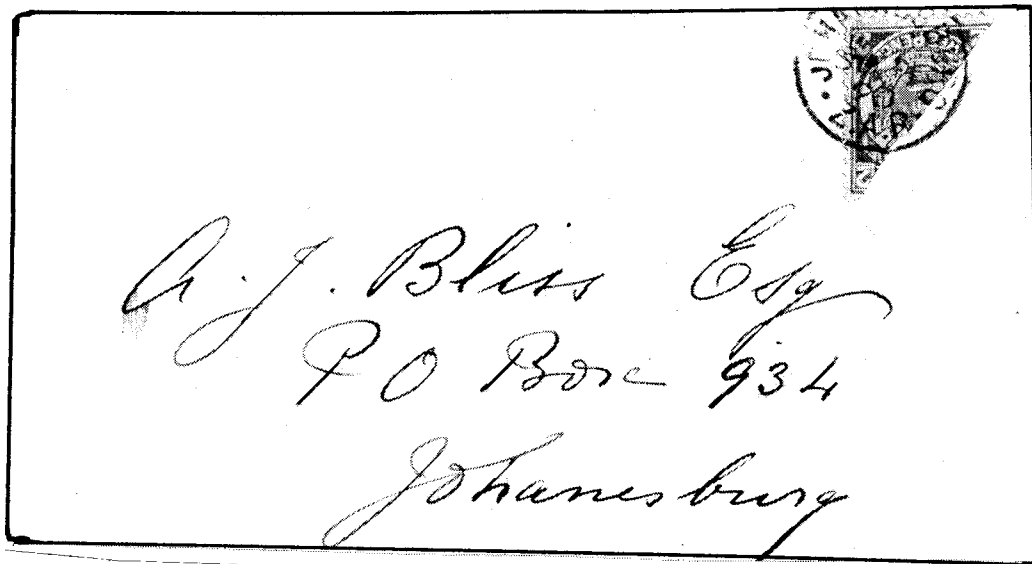 Z.A.R.
A. J. Bliss Esq
P O Box 934
Johanesburg